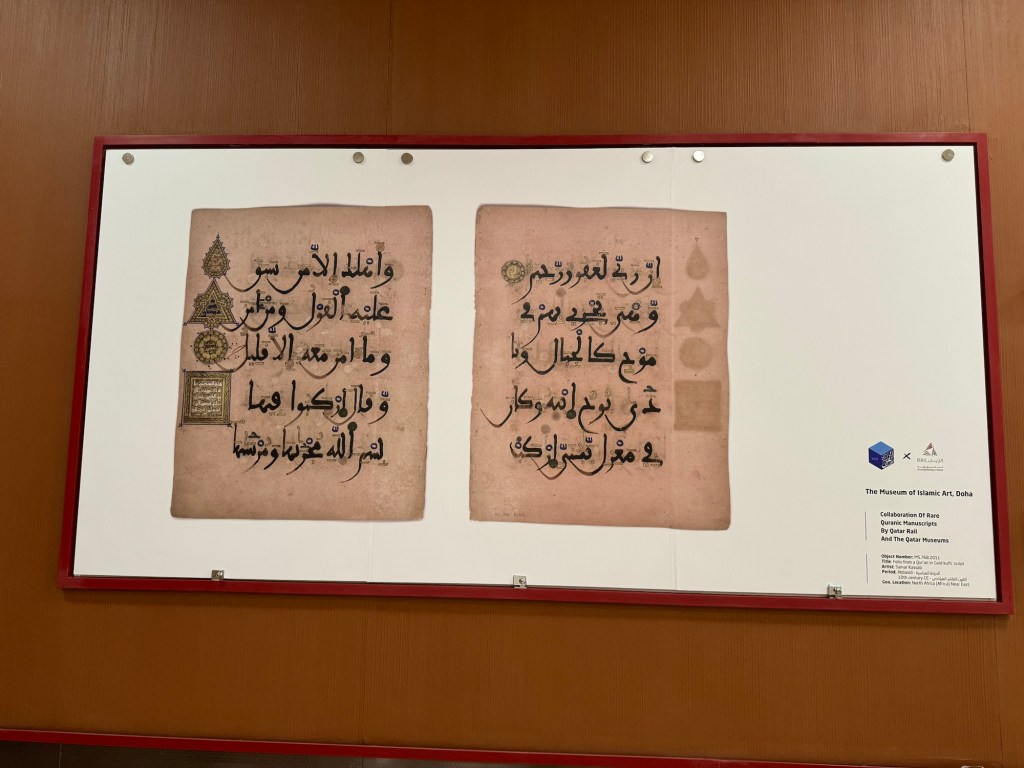 وأهلك إلا من سبق
عليه القول ومن آمن
وما آمن معه إلا قليل
وقال اركبوا فيها
بسم الله مجريها ومرسيها
إن ربي لغفور رحيم
وهي تجري بهم في
موج كالجبال ونا
دى نوح ابنه وكان
في معزل يبني اركب
The Museum of Islamic Art, Doha
Collaboration Of Rare
Quranic Manuscripts
By Qatar Rail
And The Qatar Museums
Object Number:
Title: Folio from a Qur'an in Gold kufic script
Artist: Samar Kassab
Period: Abbasid - الدولة العباسية
10th century CE - القرن العاشر الميلادي
Geo. Location: North Africa (Africa) Near East